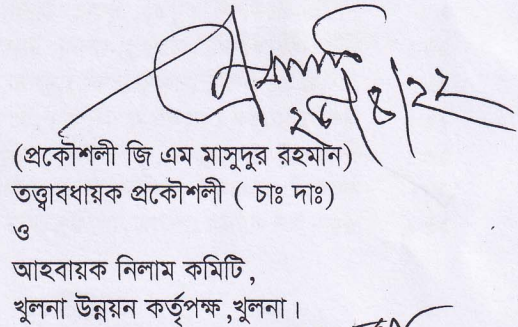 (প্রকৌশলী জি এম মাসুদুর রহমান)
তত্ত্বাবধায়ক প্রকৌশলী ( চাঃ দাঃ)
ও
আহবায়ক নিলাম কমিটি ,
খুলনা উন্নয়ন কর্তৃপক্ষ ,খুলনা ।